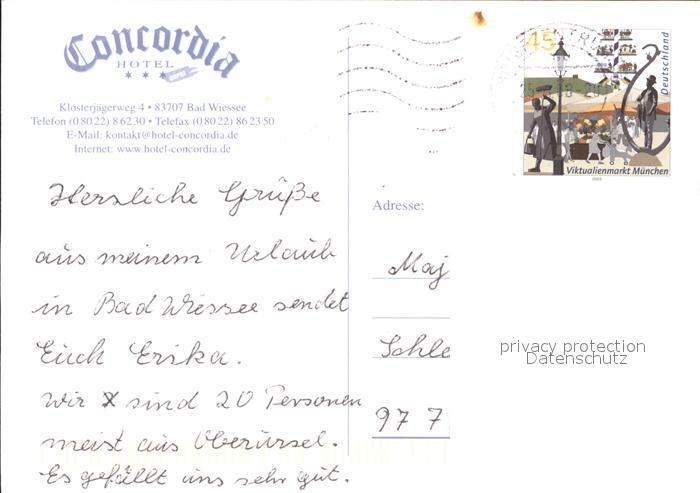 Concordia
HOTEL
Klosterjägerweg 4 • 83707 Bad Wiessee
Telefon (0 80 22) 8 62 30 • Telefax (0 80 22) 86 23 50
E-Mail: kontakt@hotel-concordia.de
Internet: www.hotel-concordia.de
Herzliche Grüße
aus meinem Urlaub
in Bad Wiessee sendet
Euch Erika.
Wir sind 20 Personen
meist aus Oberursel.
Es gefällt uns sehr gut.
45
Deutschland
Viktualienmarkt München
2003
Adresse:
Maj
Schle
97 7
privacy protection
Datenschutz